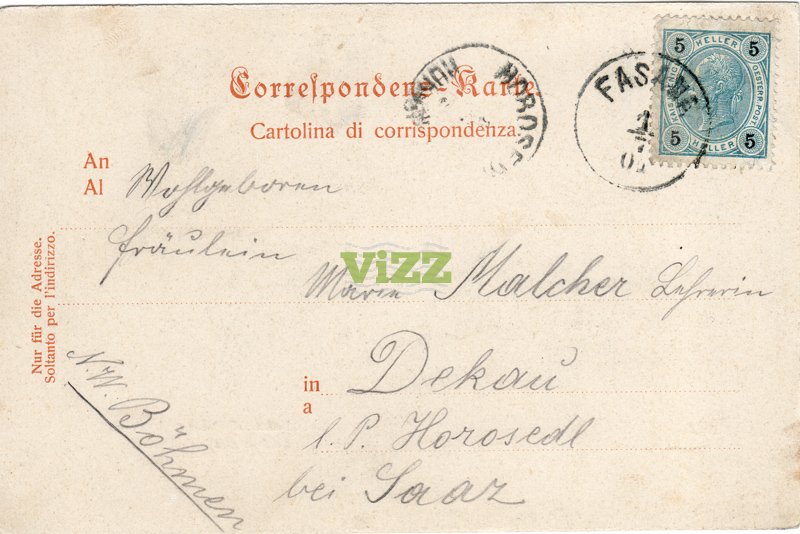 Correspondenz-Karte.
Cartolina di corrispondenza.
HOROSEDL
FASANA
5 HELLER 5
OESTERR. POST.
5 HELLER 5
An
Al
Wohlgeboren
Fräulein
ViZZ
Marie Malcher Lehrerin
in
a
Dekau
l. P. Horosedl
bei Saaz
N.W. Böhmen
Nur für die Adresse.
Soltanto per l'indirizzo.